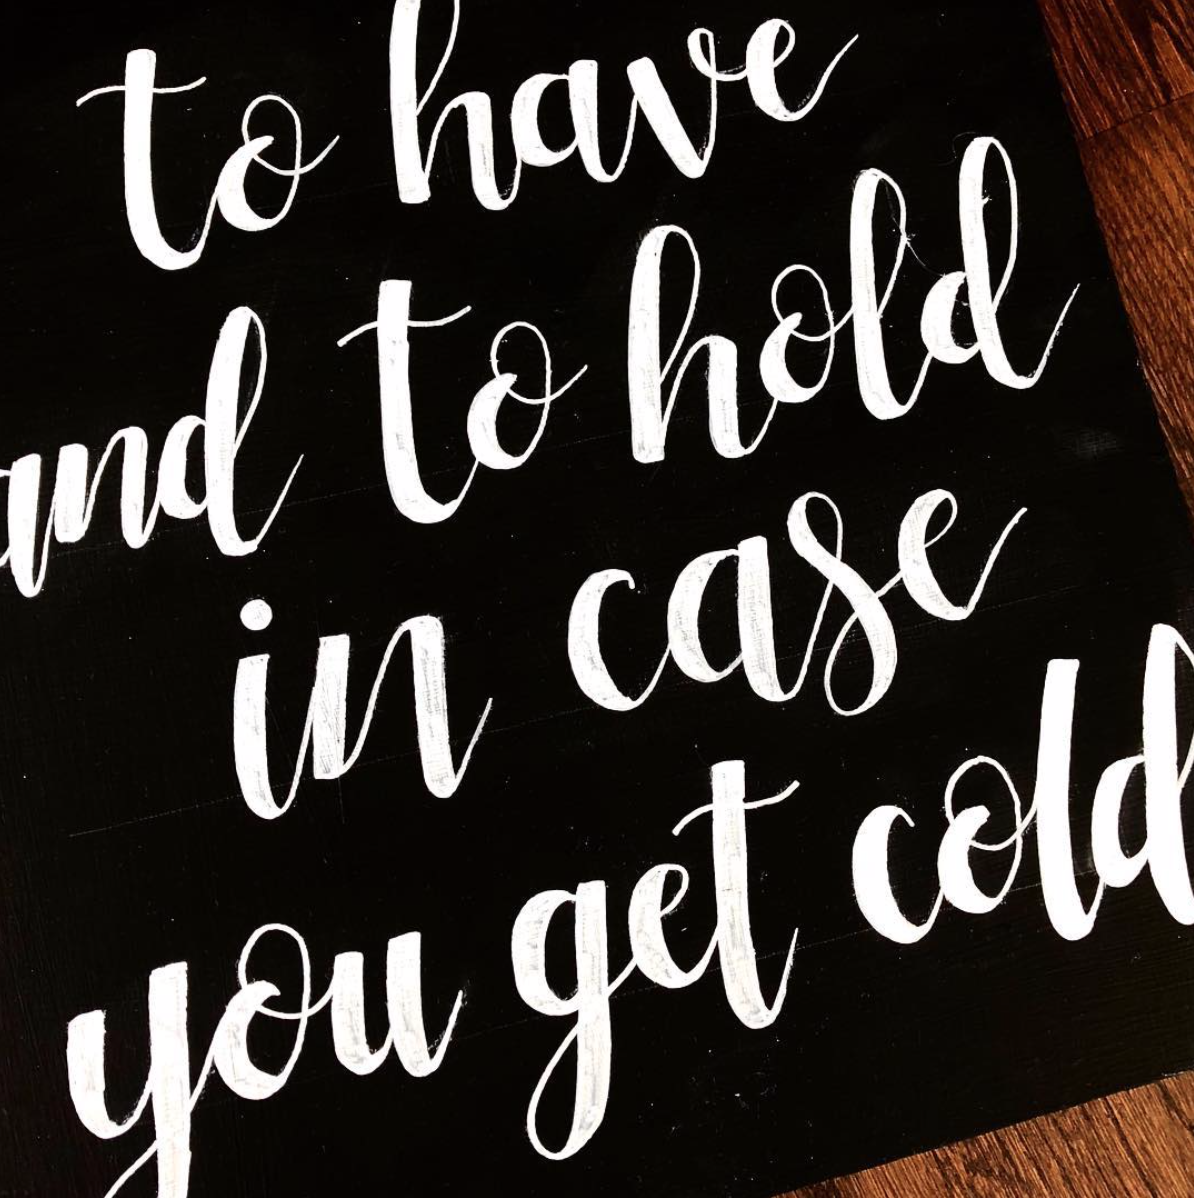 to have
and to hold
in case
you get cold